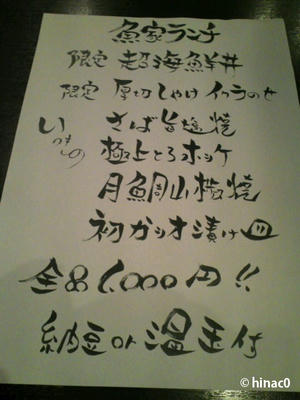 魚家ランチ
限定 超海鮮丼
限定 厚切しゃけ イクラのせ
いつもの さば旨塩焼
極上とろホッケ
初カツオ漬け皿
全品1,000円!!
納豆or温玉付
© hinac0